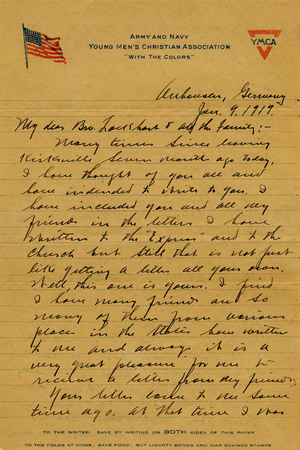 ARMY AND NAVY
YOUNG MEN'S CHRISTIAN ASSOCIATION
"WITH THE COLORS"
YMCA
Germany
Jan. 9, 1919.
My dear Bro. Lockhart & all the family:-
Many times since leaving
Kirksville seven month ago today,
I have thought of you all and
have indended to write to you. I
have included you and all my
friends in the letters I have
written to the "Express" and to the
Church but still that is not just
like getting a letter all your own.
Well, this one is yours. I find
I have many friends and so
many of them from various
places in the States have written
to me and always it is a
very great pleasure for me to
receive a letter from my friends.
Your letter came to me some
time ago. At that time I was
TO THE WRITER: SAVE BY WRITING ON BOTH SIDES OF THIS PAPER
TO THE FOLKS AT HOME: SAVE FOOD, BUY LIBERTY BONDS AND WAR SAVINGS STAMPS